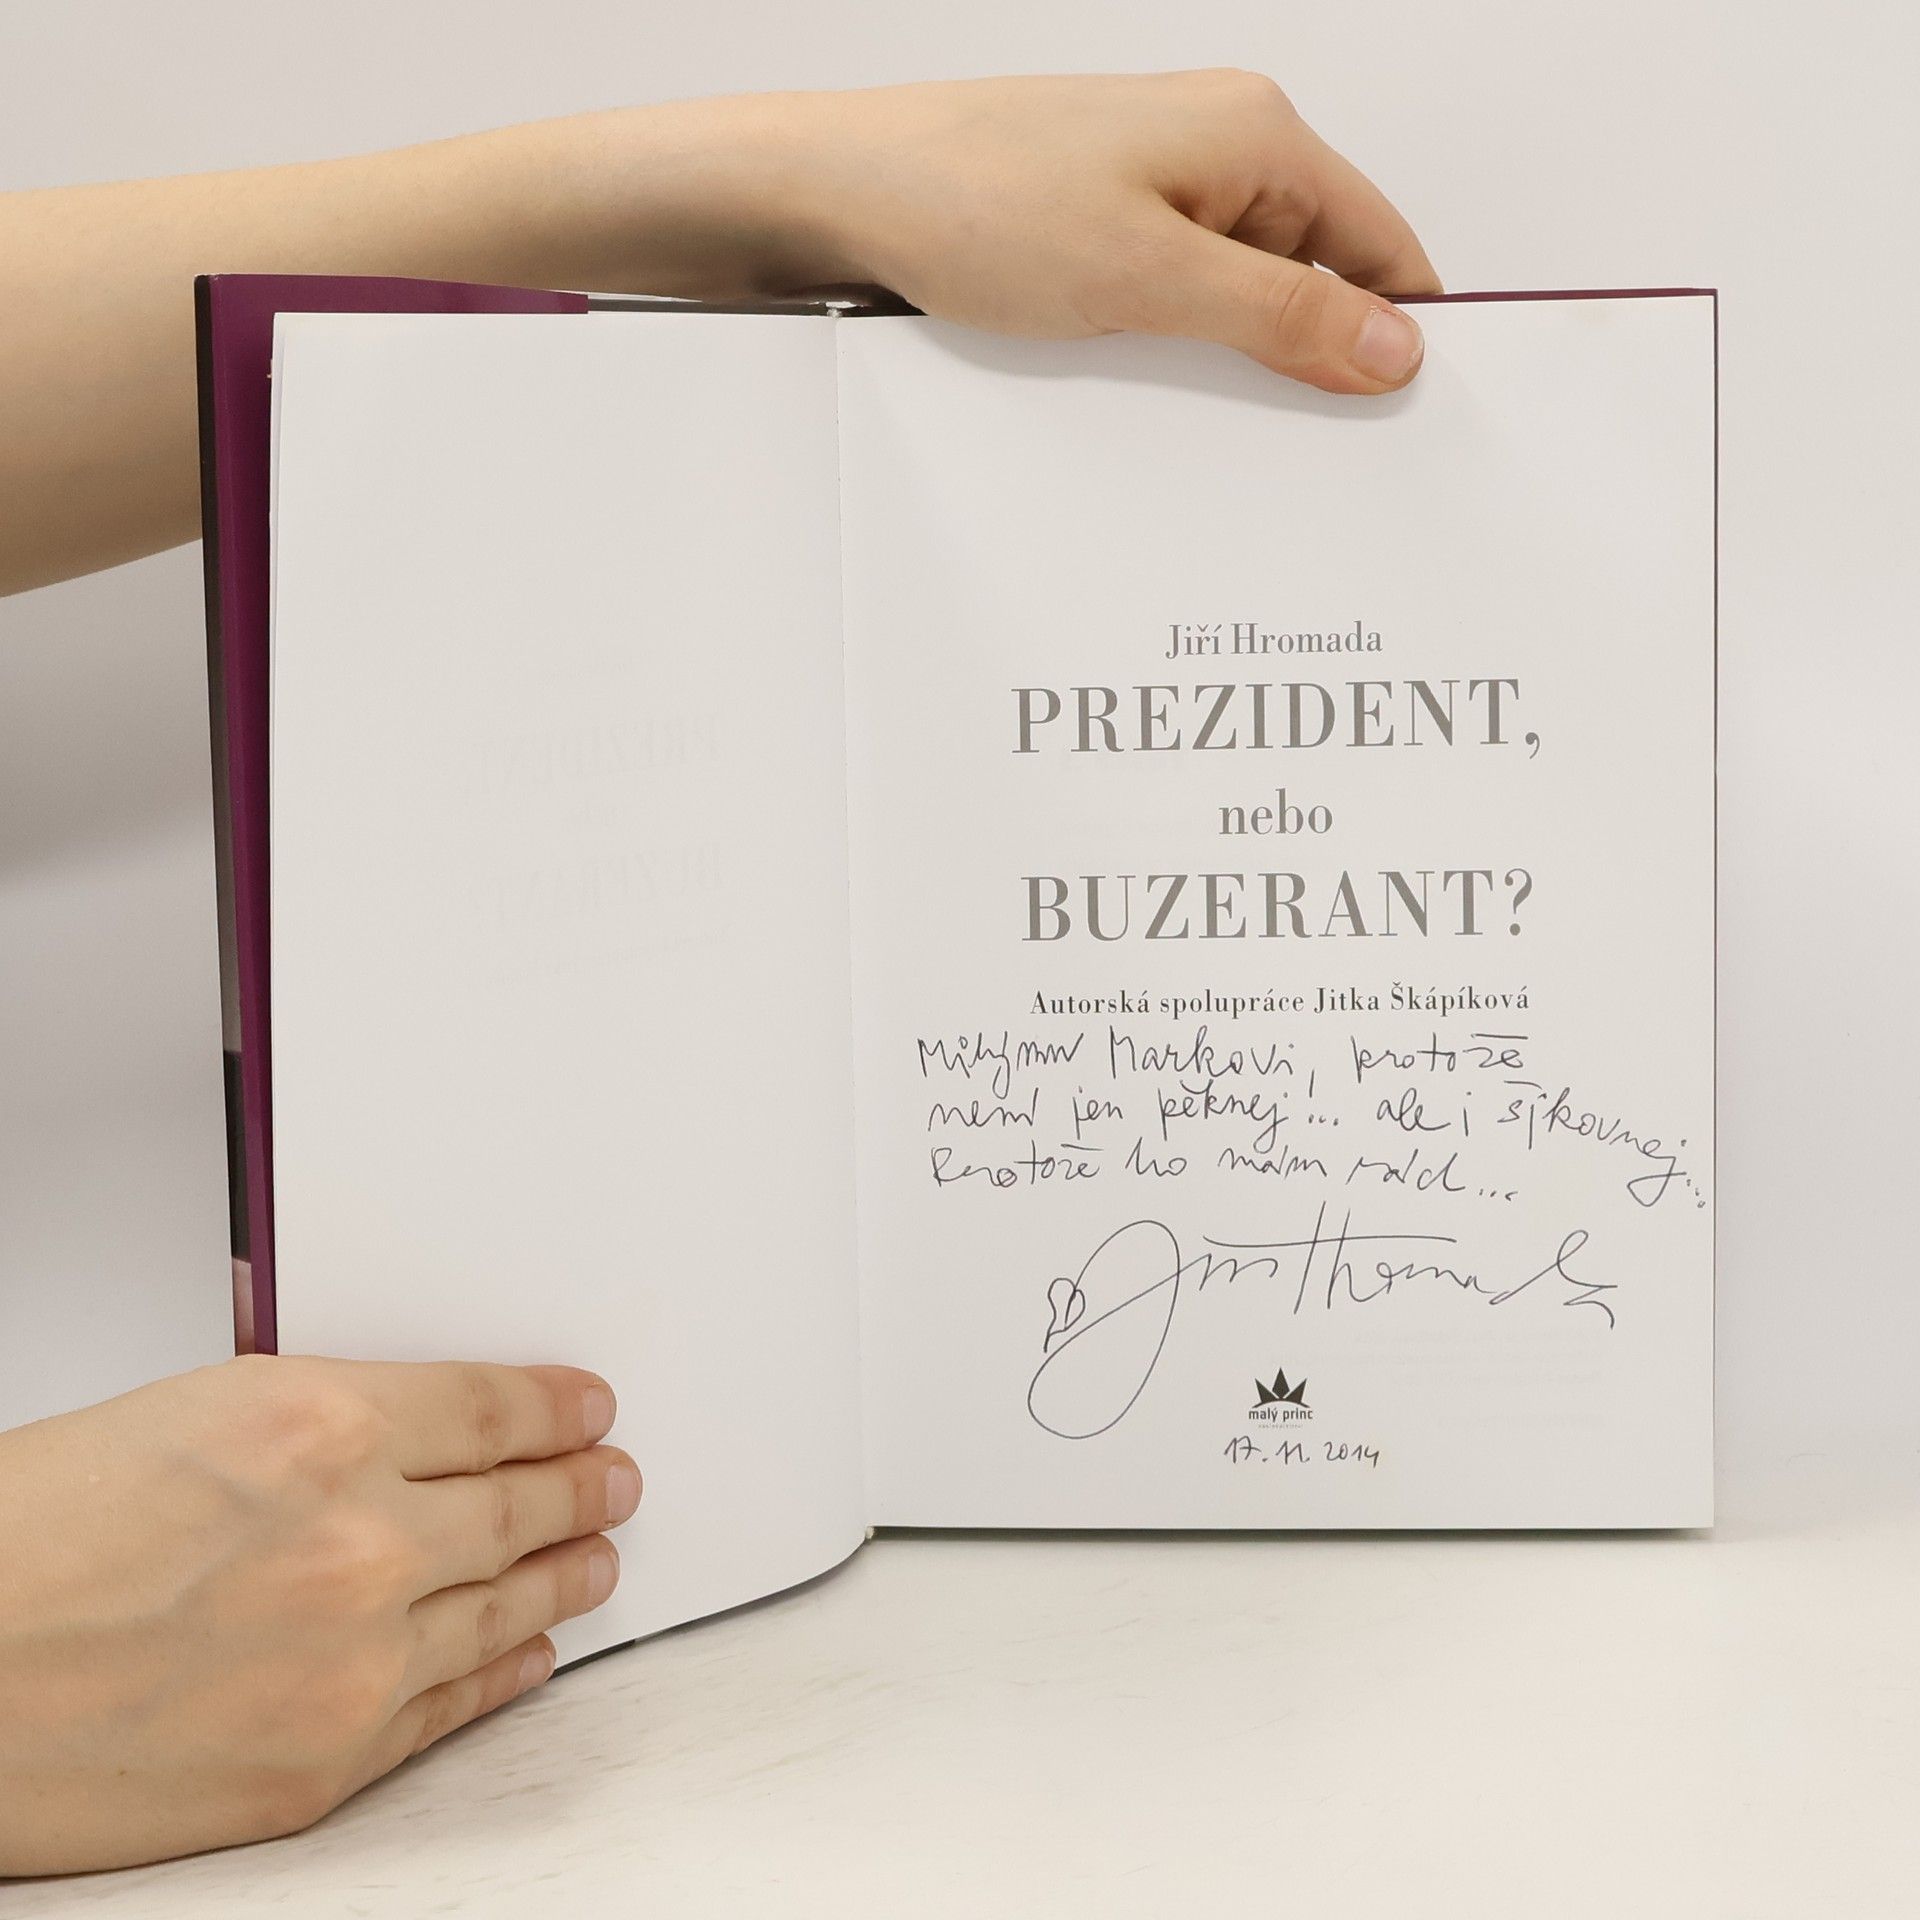 Jiří Hromada
PREZIDENT,
nebo
BUZERANT?
Autorská spolupráce Jitka Škápíková
Milýmu Markovi, protože
není jen pěknej!... ale i šikovnej...
Protože ho mám rád...
Jiří Hromada
malý princ
17. 11. 2014